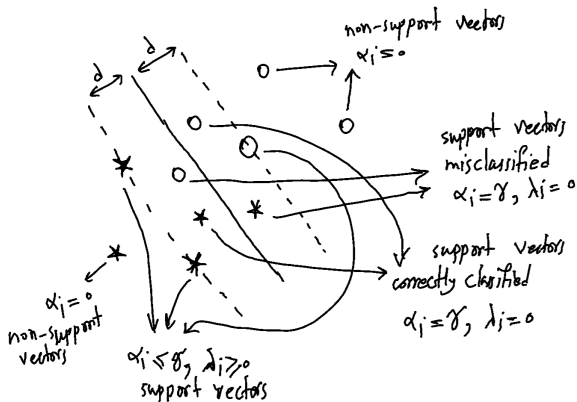 non-support vectors
αi = 0
d
d
support vectors
misclassified
αi = γ, λi = 0
support vectors
correctly clasified
αi = γ, λi = 0
αi = 0
non-support
vectors
αi ≤ γ, λi ≥ 0
support vectors